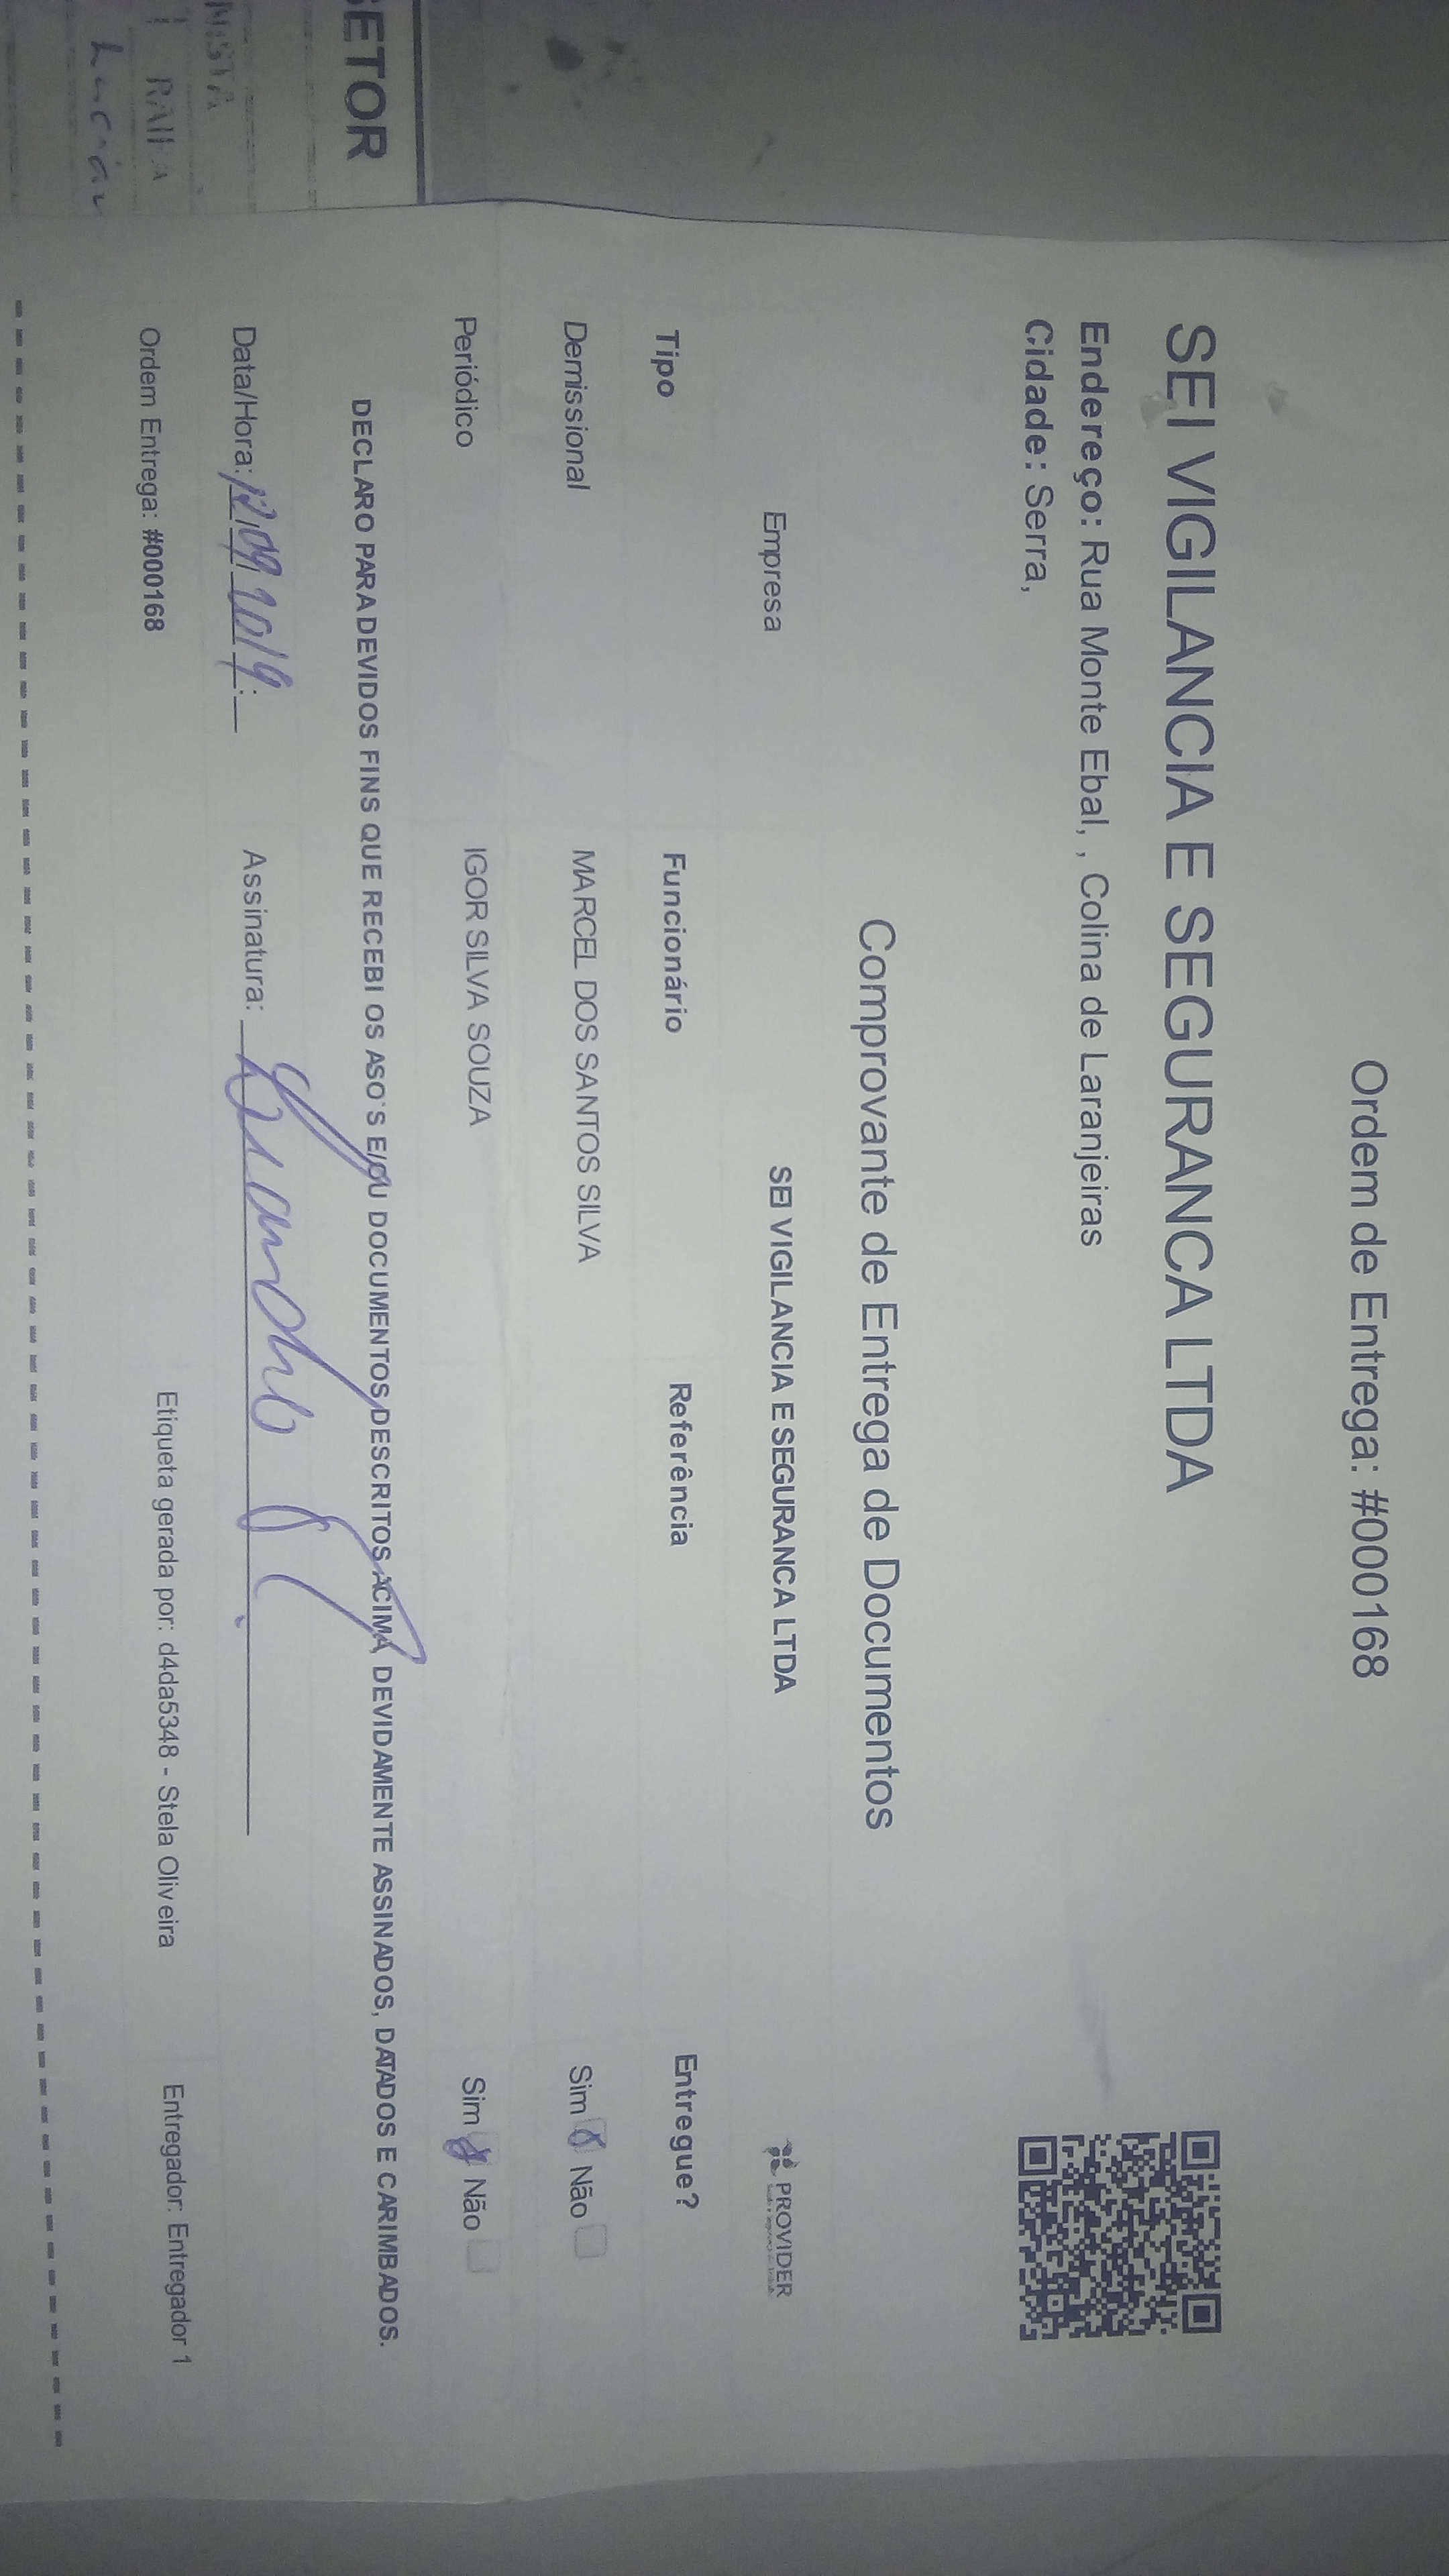 Ordem de Entrega: #000168
SEI VIGILANCIA E SEGURANCA LTDA
Endereço: Rua Monte Ebal, , Colina de Laranjeiras
Cidade: Serra,
Comprovante de Entrega de Documentos
Empresa SEI VIGILANCIA E SEGURANCA LTDA PROVIDER
Tipo Funcionário Referência Entregue?
Demissional MARCEL DOS SANTOS SILVA Sim Não
Periódico IGOR SILVA SOUZA Sim Não
DECLARO PARA DEVIDOS FINS QUE RECEBI OS ASO`S E/OU DOCUMENTOS DESCRITOS ACIMA DEVIDAMENTE ASSINADOS, DATADOS E CARIMBADOS.
Data/Hora: 12/09/2019 : Assinatura:
Ordem Entrega: #000168 Etiqueta gerada por: d4da5348 - Stela Oliveira Entregador: Entregador 1
SETOR